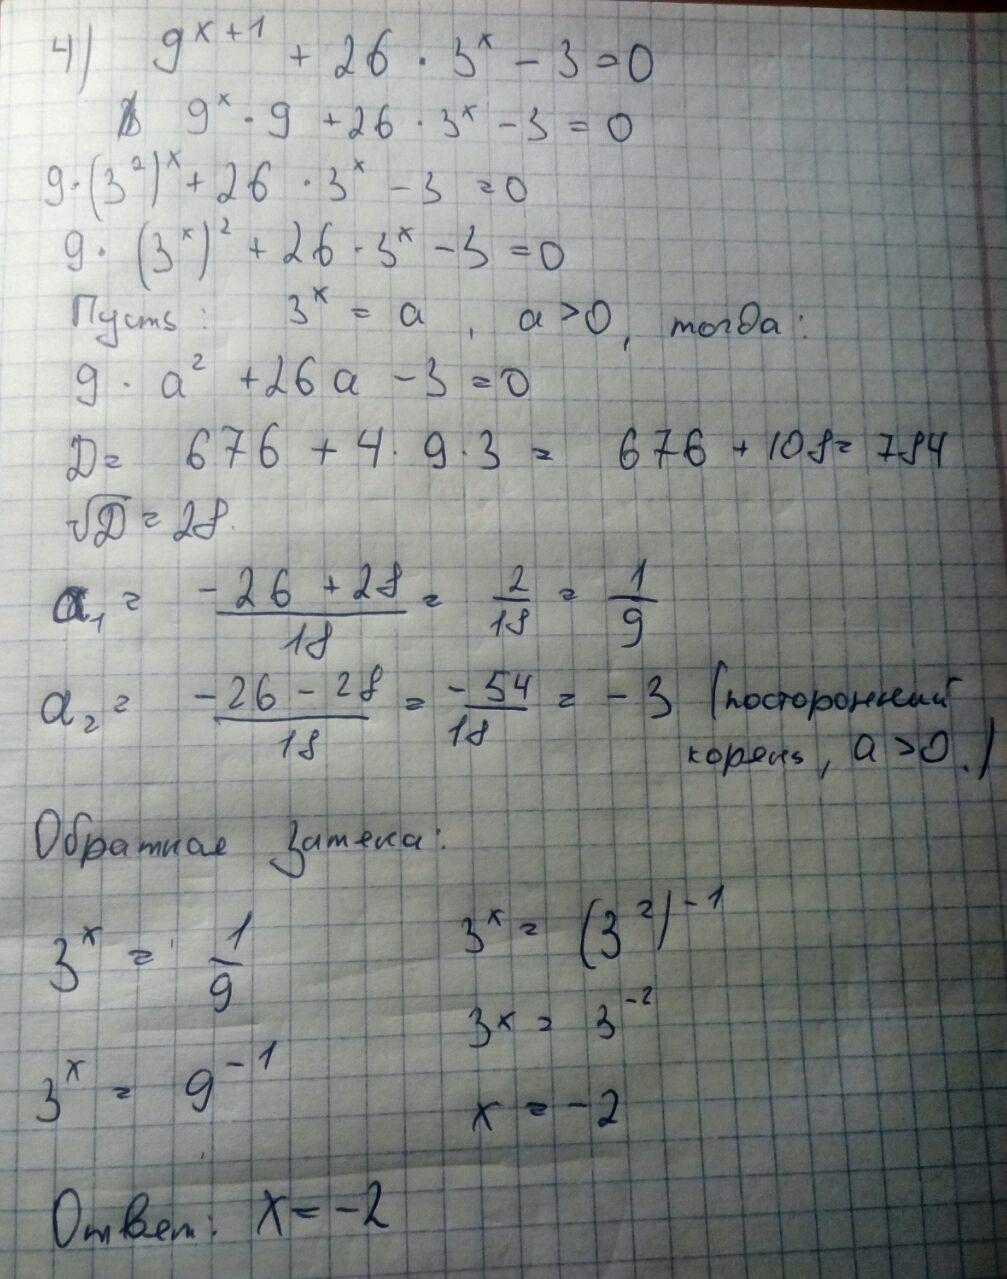 4) 9^{x+1} + 26 · 3^x - 3 = 0
9^x · 9 + 26 · 3^x - 3 = 0
9 · (3^2)^x + 26 · 3^x - 3 = 0
9 · (3^x)^2 + 26 · 3^x - 3 = 0
Пусть: 3^x = a, a > 0, тогда:
9 · a^2 + 26a - 3 = 0
D = 676 + 4 · 9 · 3 = 676 + 108 = 784
√D = 28.
a_1 = (-26 + 28)/18 = 2/18 = 1/9
a_2 = (-26 - 28)/18 = -54/18 = -3 (посторонний
корень, a > 0.)
Обратная замена:
3^x = 1/9
3^x = 9^{-1}
3^x = (3^2)^{-1}
3^x = 3^{-2}
x = -2
Ответ: x = -2